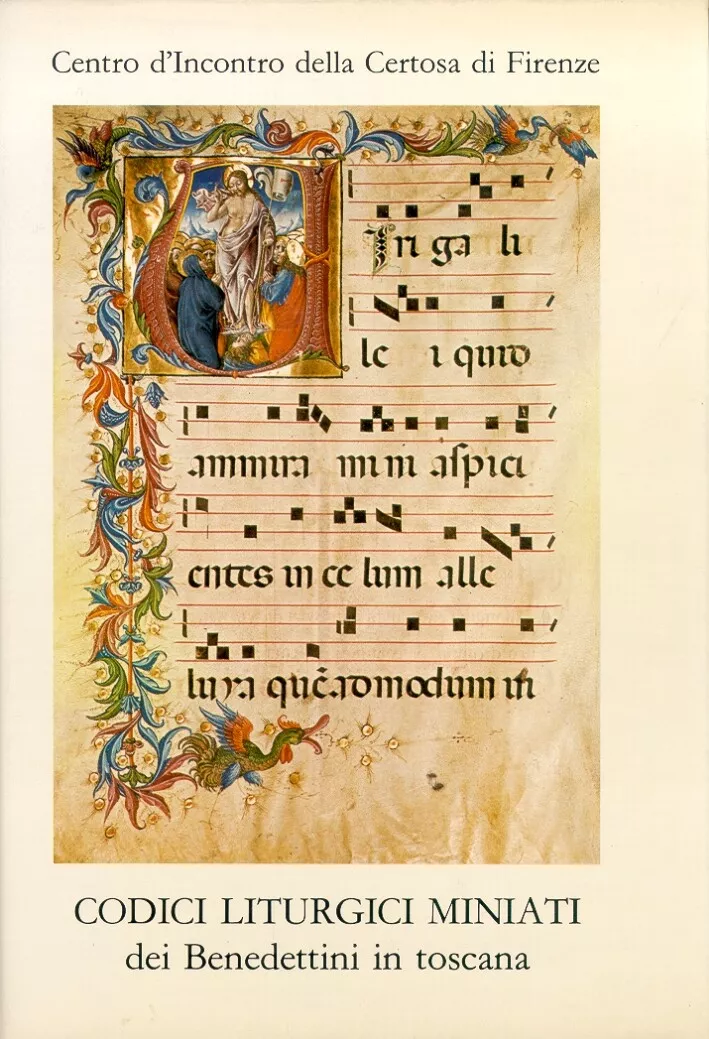 Centro d'Incontro della Certosa di Firenze
Viri gali
le i quid
ammira mini aspici
entes in ce lum alle
luya quēadmodum ui
CODICI LITURGICI MINIATI
dei Benedettini in toscana